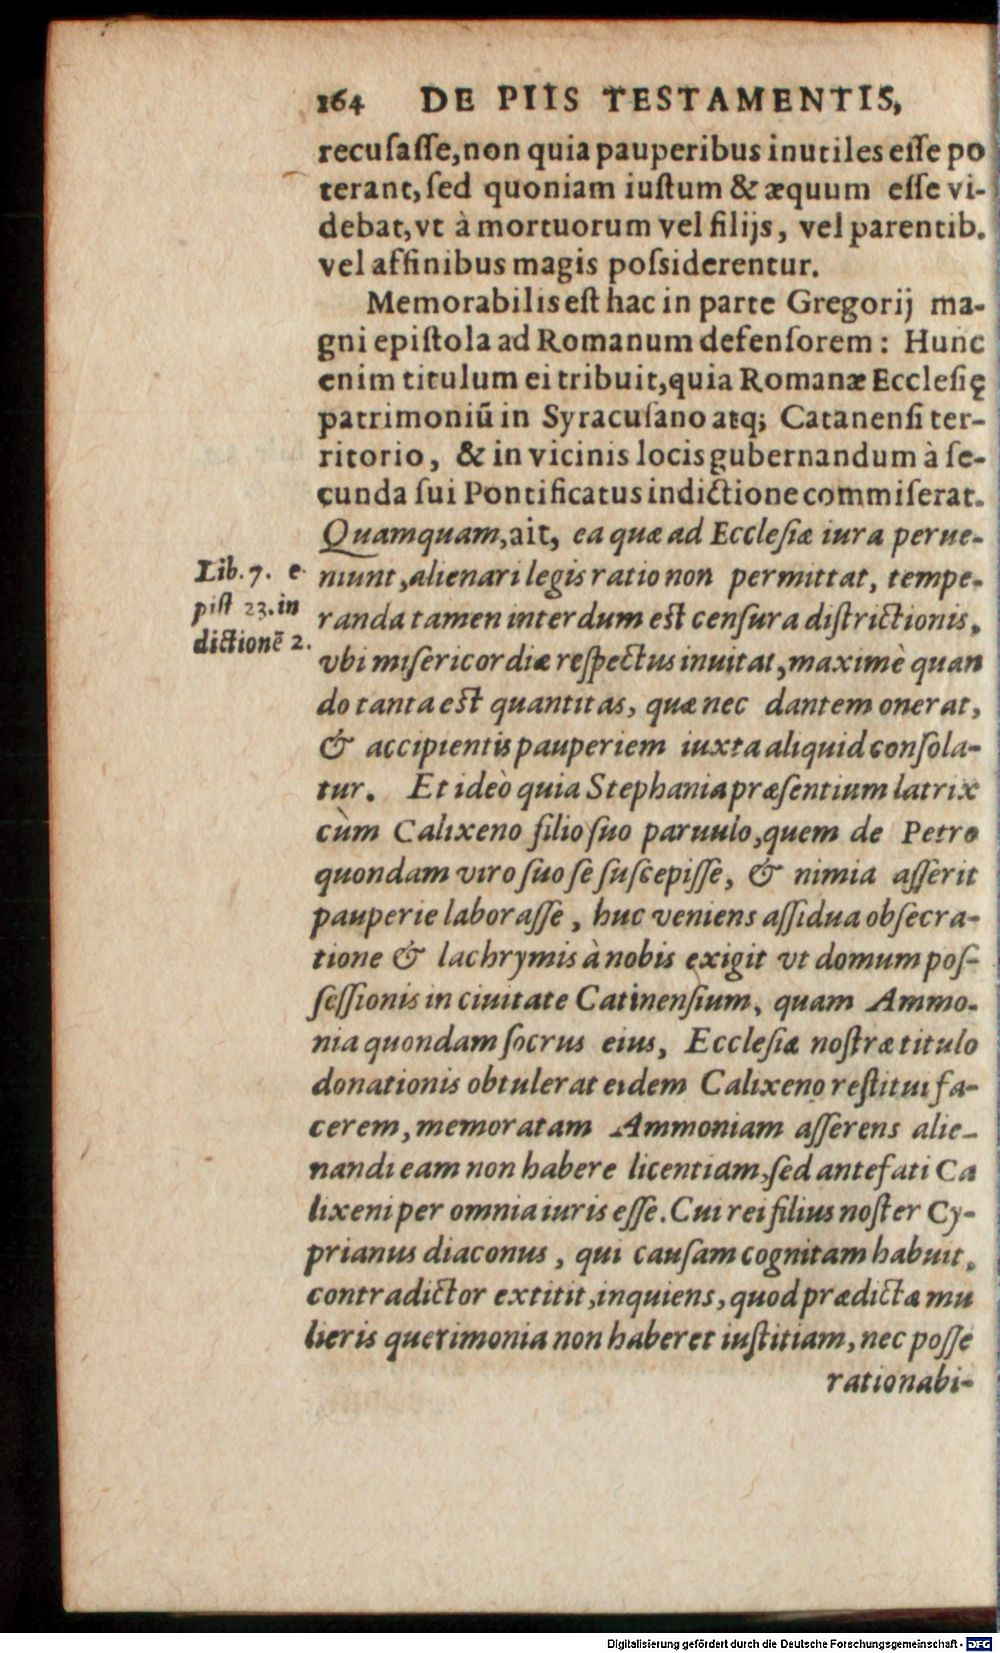 164 DE PIIS TESTAMENTIS,
recuſaſſe, non quia pauperibus inutiles eſſe po
terant, ſed quoniam iuſtum & æquum eſſe vi-
debat, vt à mortuorum vel filijs, vel parentib.
vel affinibus magis poſsiderentur.
Memorabilis eſt hac in parte Gregorij ma-
gni epiſtola ad Romanum defenſorem: Hunc
enim titulum ei tribuit, quia Romanæ Eccleſię
patrimoniũ in Syracuſano atq; Catanenſi ter-
ritorio, & in vicinis locis gubernandum à ſe-
cunda ſui Pontificatus indictione commiſerat.
Quamquam, ait, ea quæ ad Eccleſiæ iura perue-
niunt, alienari legis ratio non permittat, tempe-
randa tamen interdum eſt cenſura diſtrictionis,
vbi miſericordiæ reſpectus inuitat, maximè quan
do tanta eſt quantitas, quæ nec dantem onerat,
& accipientis pauperiem iuxta aliquid conſola-
tur. Et ideò quia Stephania præſentium latrix
cùm Calixeno filio ſuo paruulo, quem de Petro
quondam viro ſuo ſe ſuſcepiſſe, & nimia aſſerit
pauperie laboraſſe, huc veniens aſſidua obſecra-
tione & lachrymis à nobis exigit vt domum poſ-
ſeſſionis in ciuitate Catinenſium, quam Ammo-
nia quondam ſocrus eius, Eccleſiæ noſtræ titulo
donationis obtulerat eidem Calixeno reſtitui fa-
cerem, memoratam Ammoniam aſſerens alie-
nandi eam non habere licentiam, ſed antefati Ca
lixeni per omnia iuris eſſe. Cui rei filius noſter Cy-
prianus diaconus, qui cauſam cognitam habuit,
contradictor extitit, inquiens, quod prædictæ mu
lieris querimonia non haberet iuſtitiam, nec poſſe
rationabi-
Lib. 7. e-
piſt 23. in
dictionẽ 2.
Digitalisierung gefördert durch die Deutsche Forschungsgemeinschaft - DFG